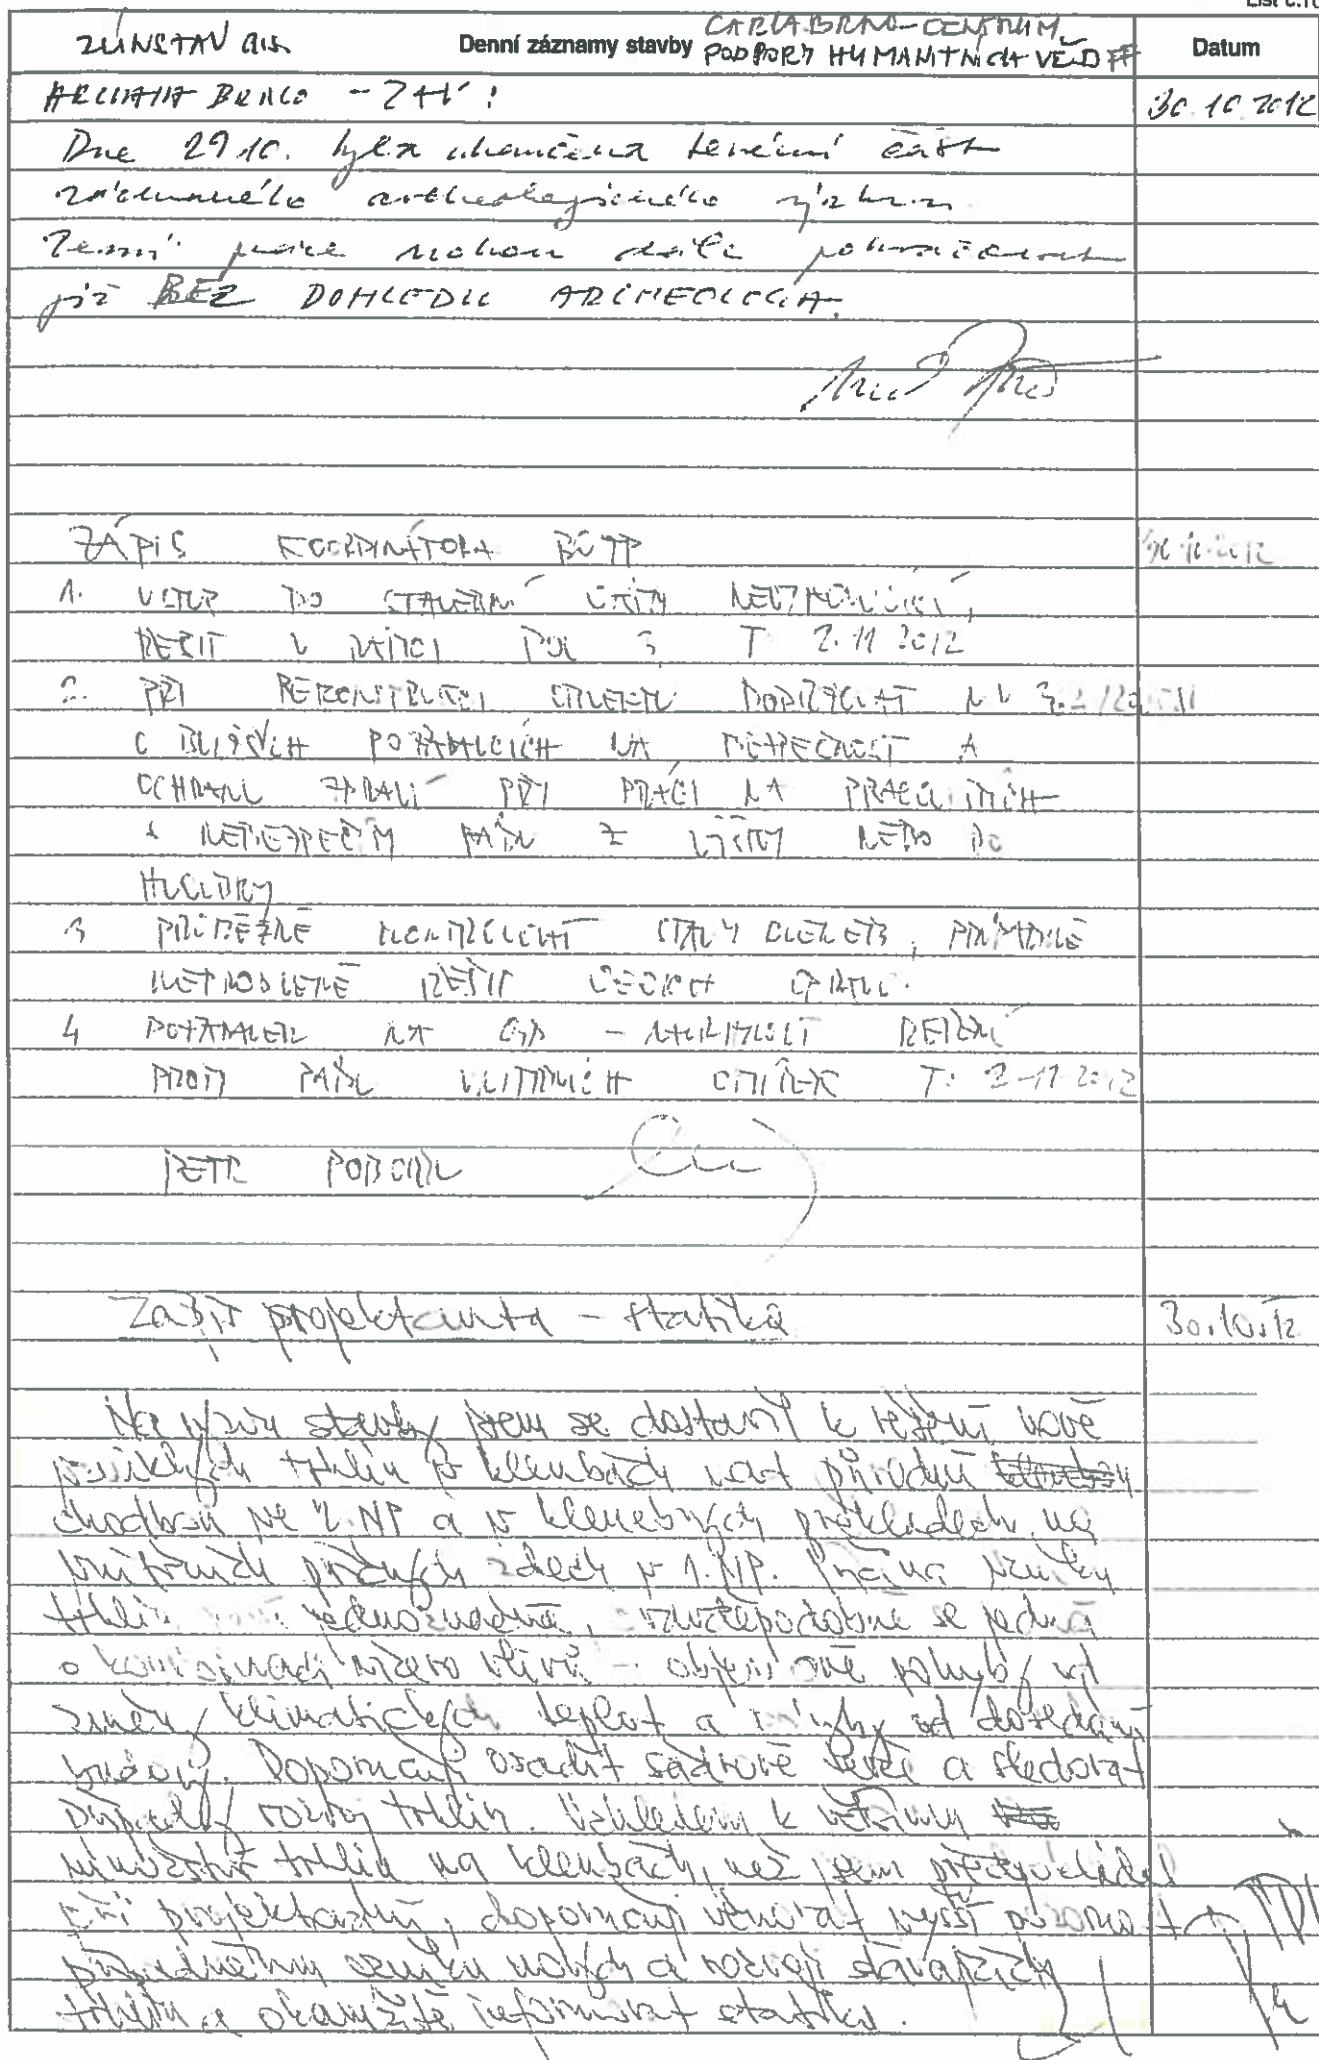 List č.
UNISTAV a.s. Denní záznamy stavby CARLA BRNO - CENTRUM
PODPORY HUMANITNÍCH VĚD FF Datum
ARCHAIA BRNO - ZAV : 30.10.2012
Dne 29.10. byla ukončena terénní část
záchranného archeologického výzkumu
Zemní práce mohou dále pokračovat
již BEZ DOHLEDU ARCHEOLOGA.
ZÁPIS KOORDINÁTORA BOZP
1. VSTUP DO STAVEBNÍ
ŘEŠIT V RÁMCI 3 T 2.11 2012
2. PŘI REKONSTRUKCI DODRŽOVAT NV
O BLIŽŠÍCH POŽADAVCÍCH NA BEZPEČNOST A
OCHRANU ZDRAVÍ PŘI PRÁCI NA PRACOVIŠTÍCH
S NEBEZPEČÍM PÁDU Z VÝŠKY NEBO DO
HLOUBKY
3 PRŮBĚŽNĚ KONTROLOVAT STAV KLENEB, PŘÍPADNĚ
NEPRODLENĚ ŘEŠIT OPRAVU.
4 POŽADAVEK NA
PROTI PÁDU T: 2-11 2012
PETR
Zápis projektanta - statika 30.10.12
Na výzvu stavby jsem se dostavil k řešení nově
vzniklých trhlin v klenbách nad
chodbou ve 2.NP a v klenebných překladech na
vnitřních příčných zdech v 1.NP. Příčina vzniku
trhlin jednoznačná, pravděpodobně se jedná
o kombinaci více vlivů - objemové pohyby od
změny klimatických teplot a od dosedání
budovy. Doporučuji osadit sádrové terče a sledovat
případný rozvoj trhlin. Vzhledem k většímu
množství trhlin na klenbách, než jsem předpokládal
při projektování, doporučuji věnovat vyšší pozornost
případnému vzniku nových a rozvoji stávajících
trhlin a okamžitě informovat statika.